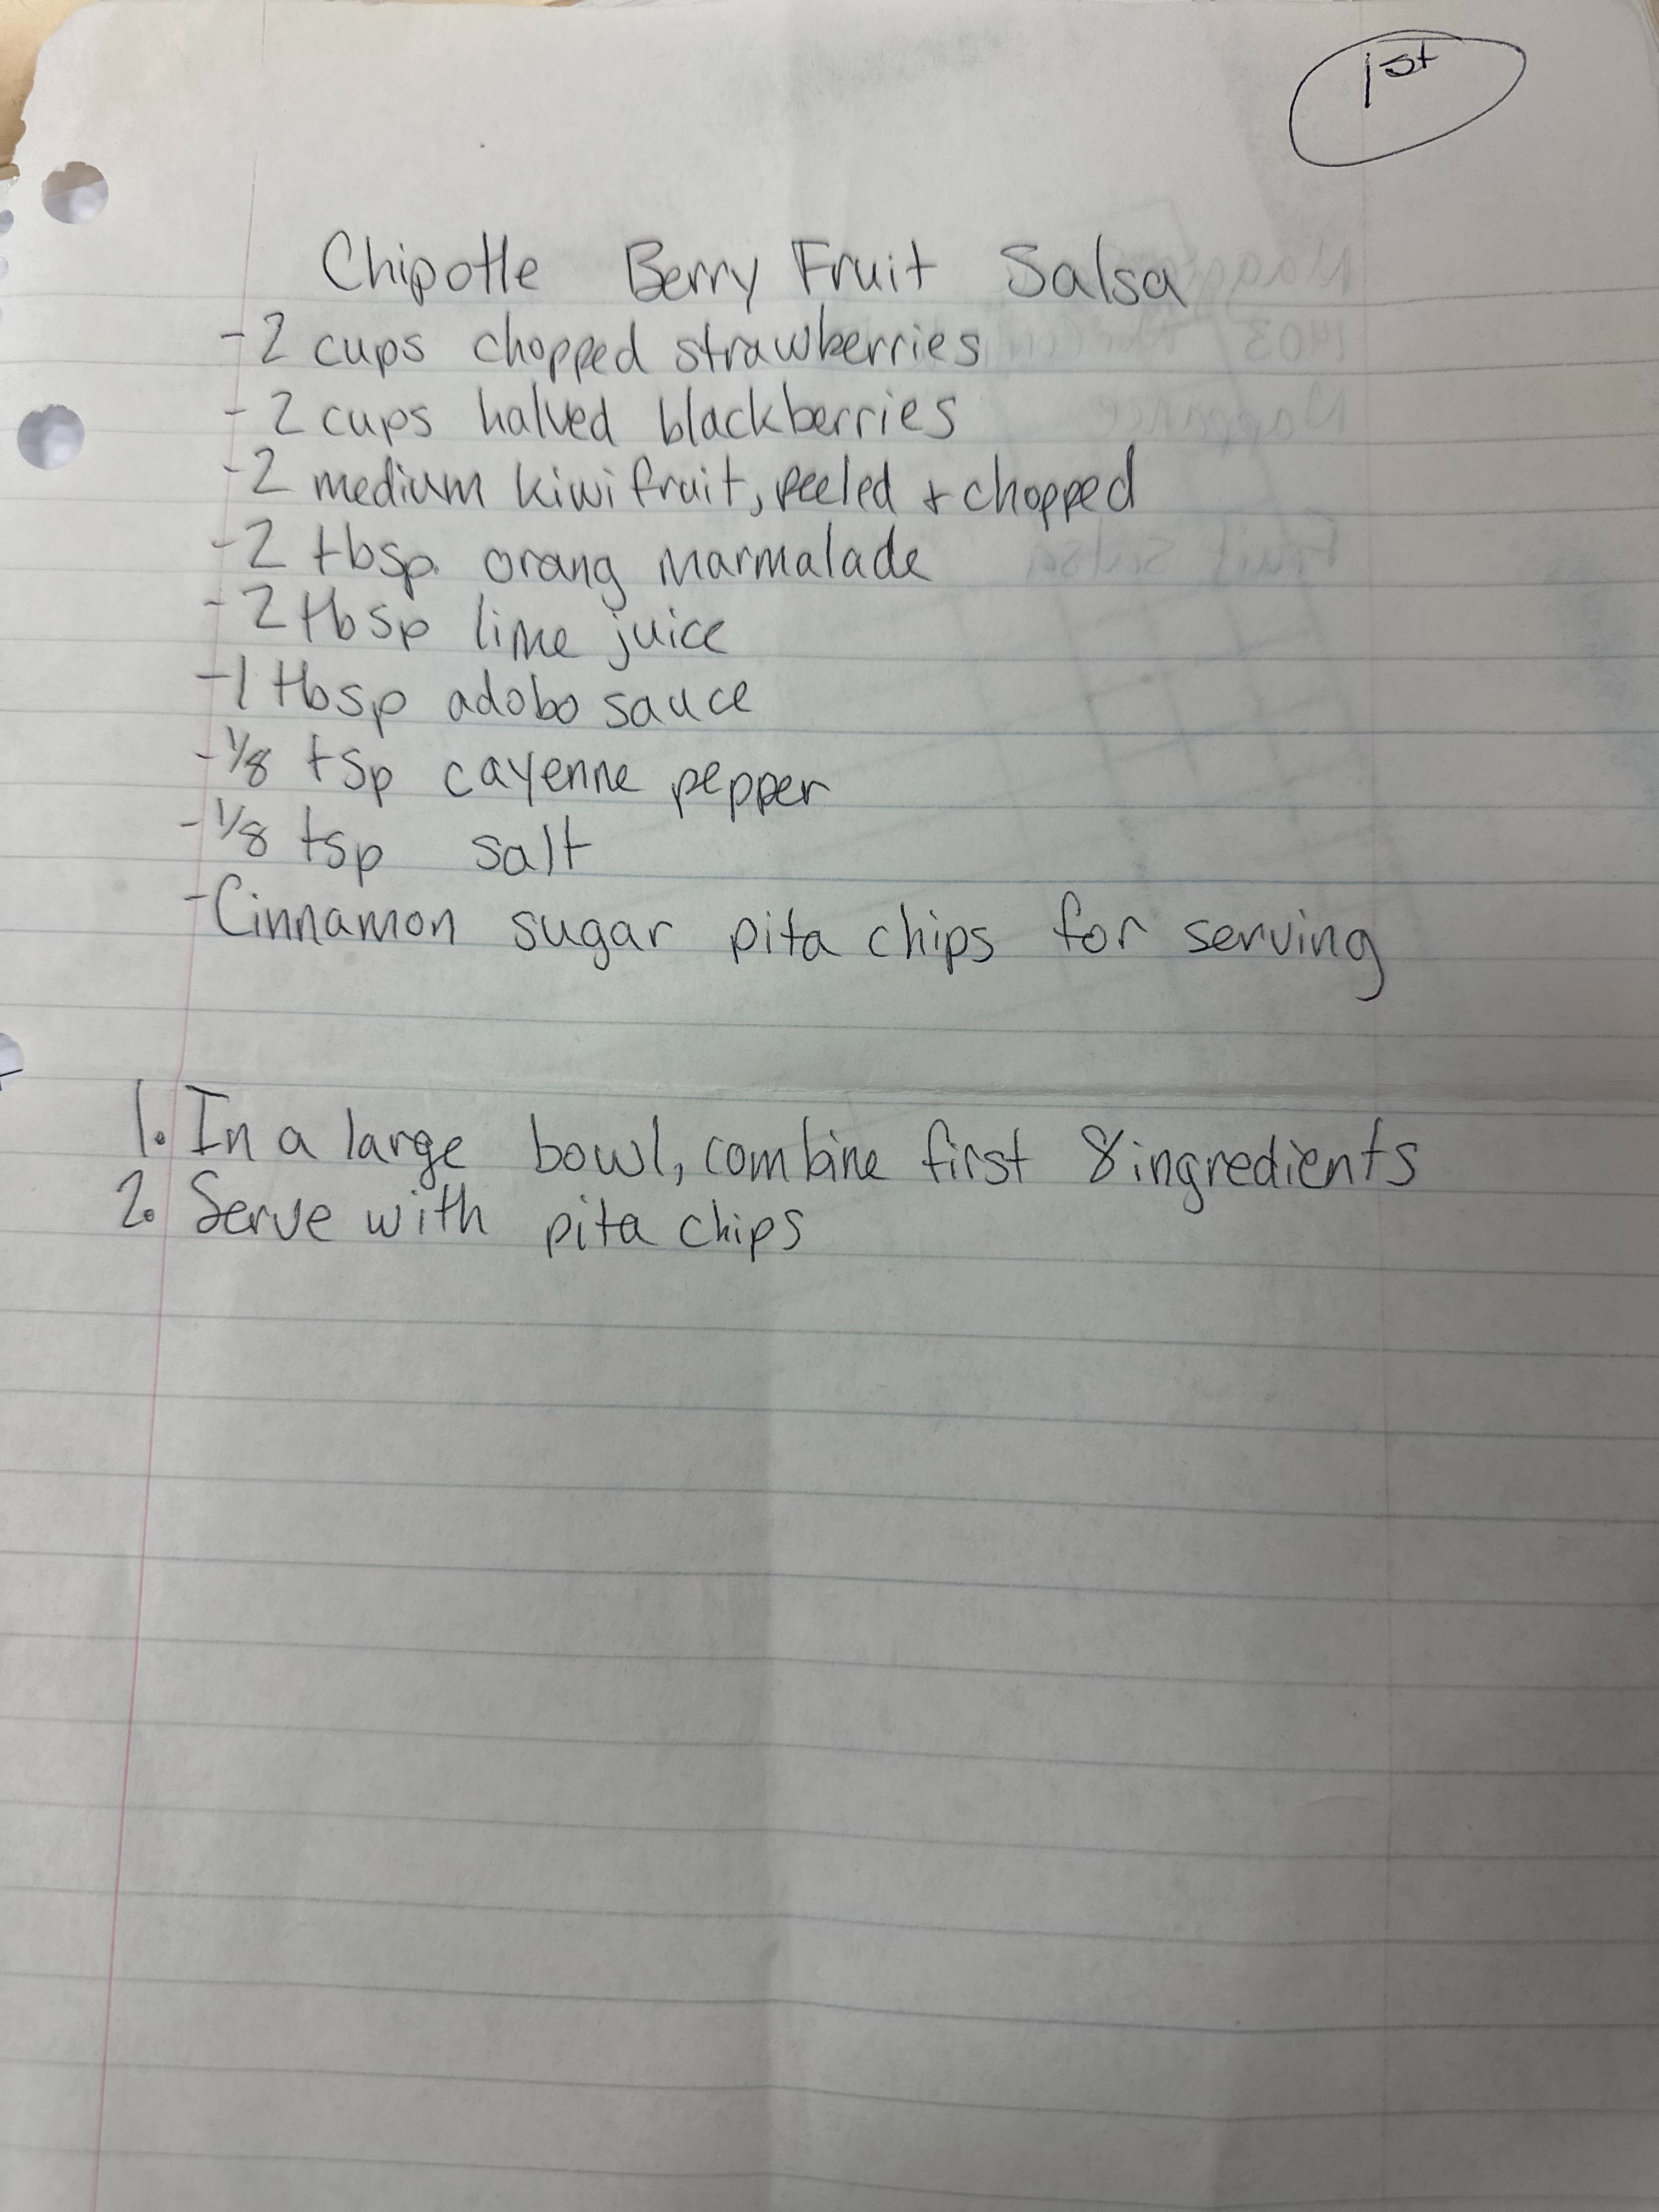 1st
Chipotle Berry Fruit Salsa
-2 cups chopped strawberries
-2 cups halved blackberries
-2 medium kiwi fruit, peeled + chopped
-2 tbsp. orang marmalade
-2 tbsp lime juice
-1 tbsp adobo sauce
-1/8 tsp cayenne pepper
-1/8 tsp salt
-Cinnamon sugar pita chips for serving
1. In a large bowl, combine first 8 ingredients
2. Serve with pita chips